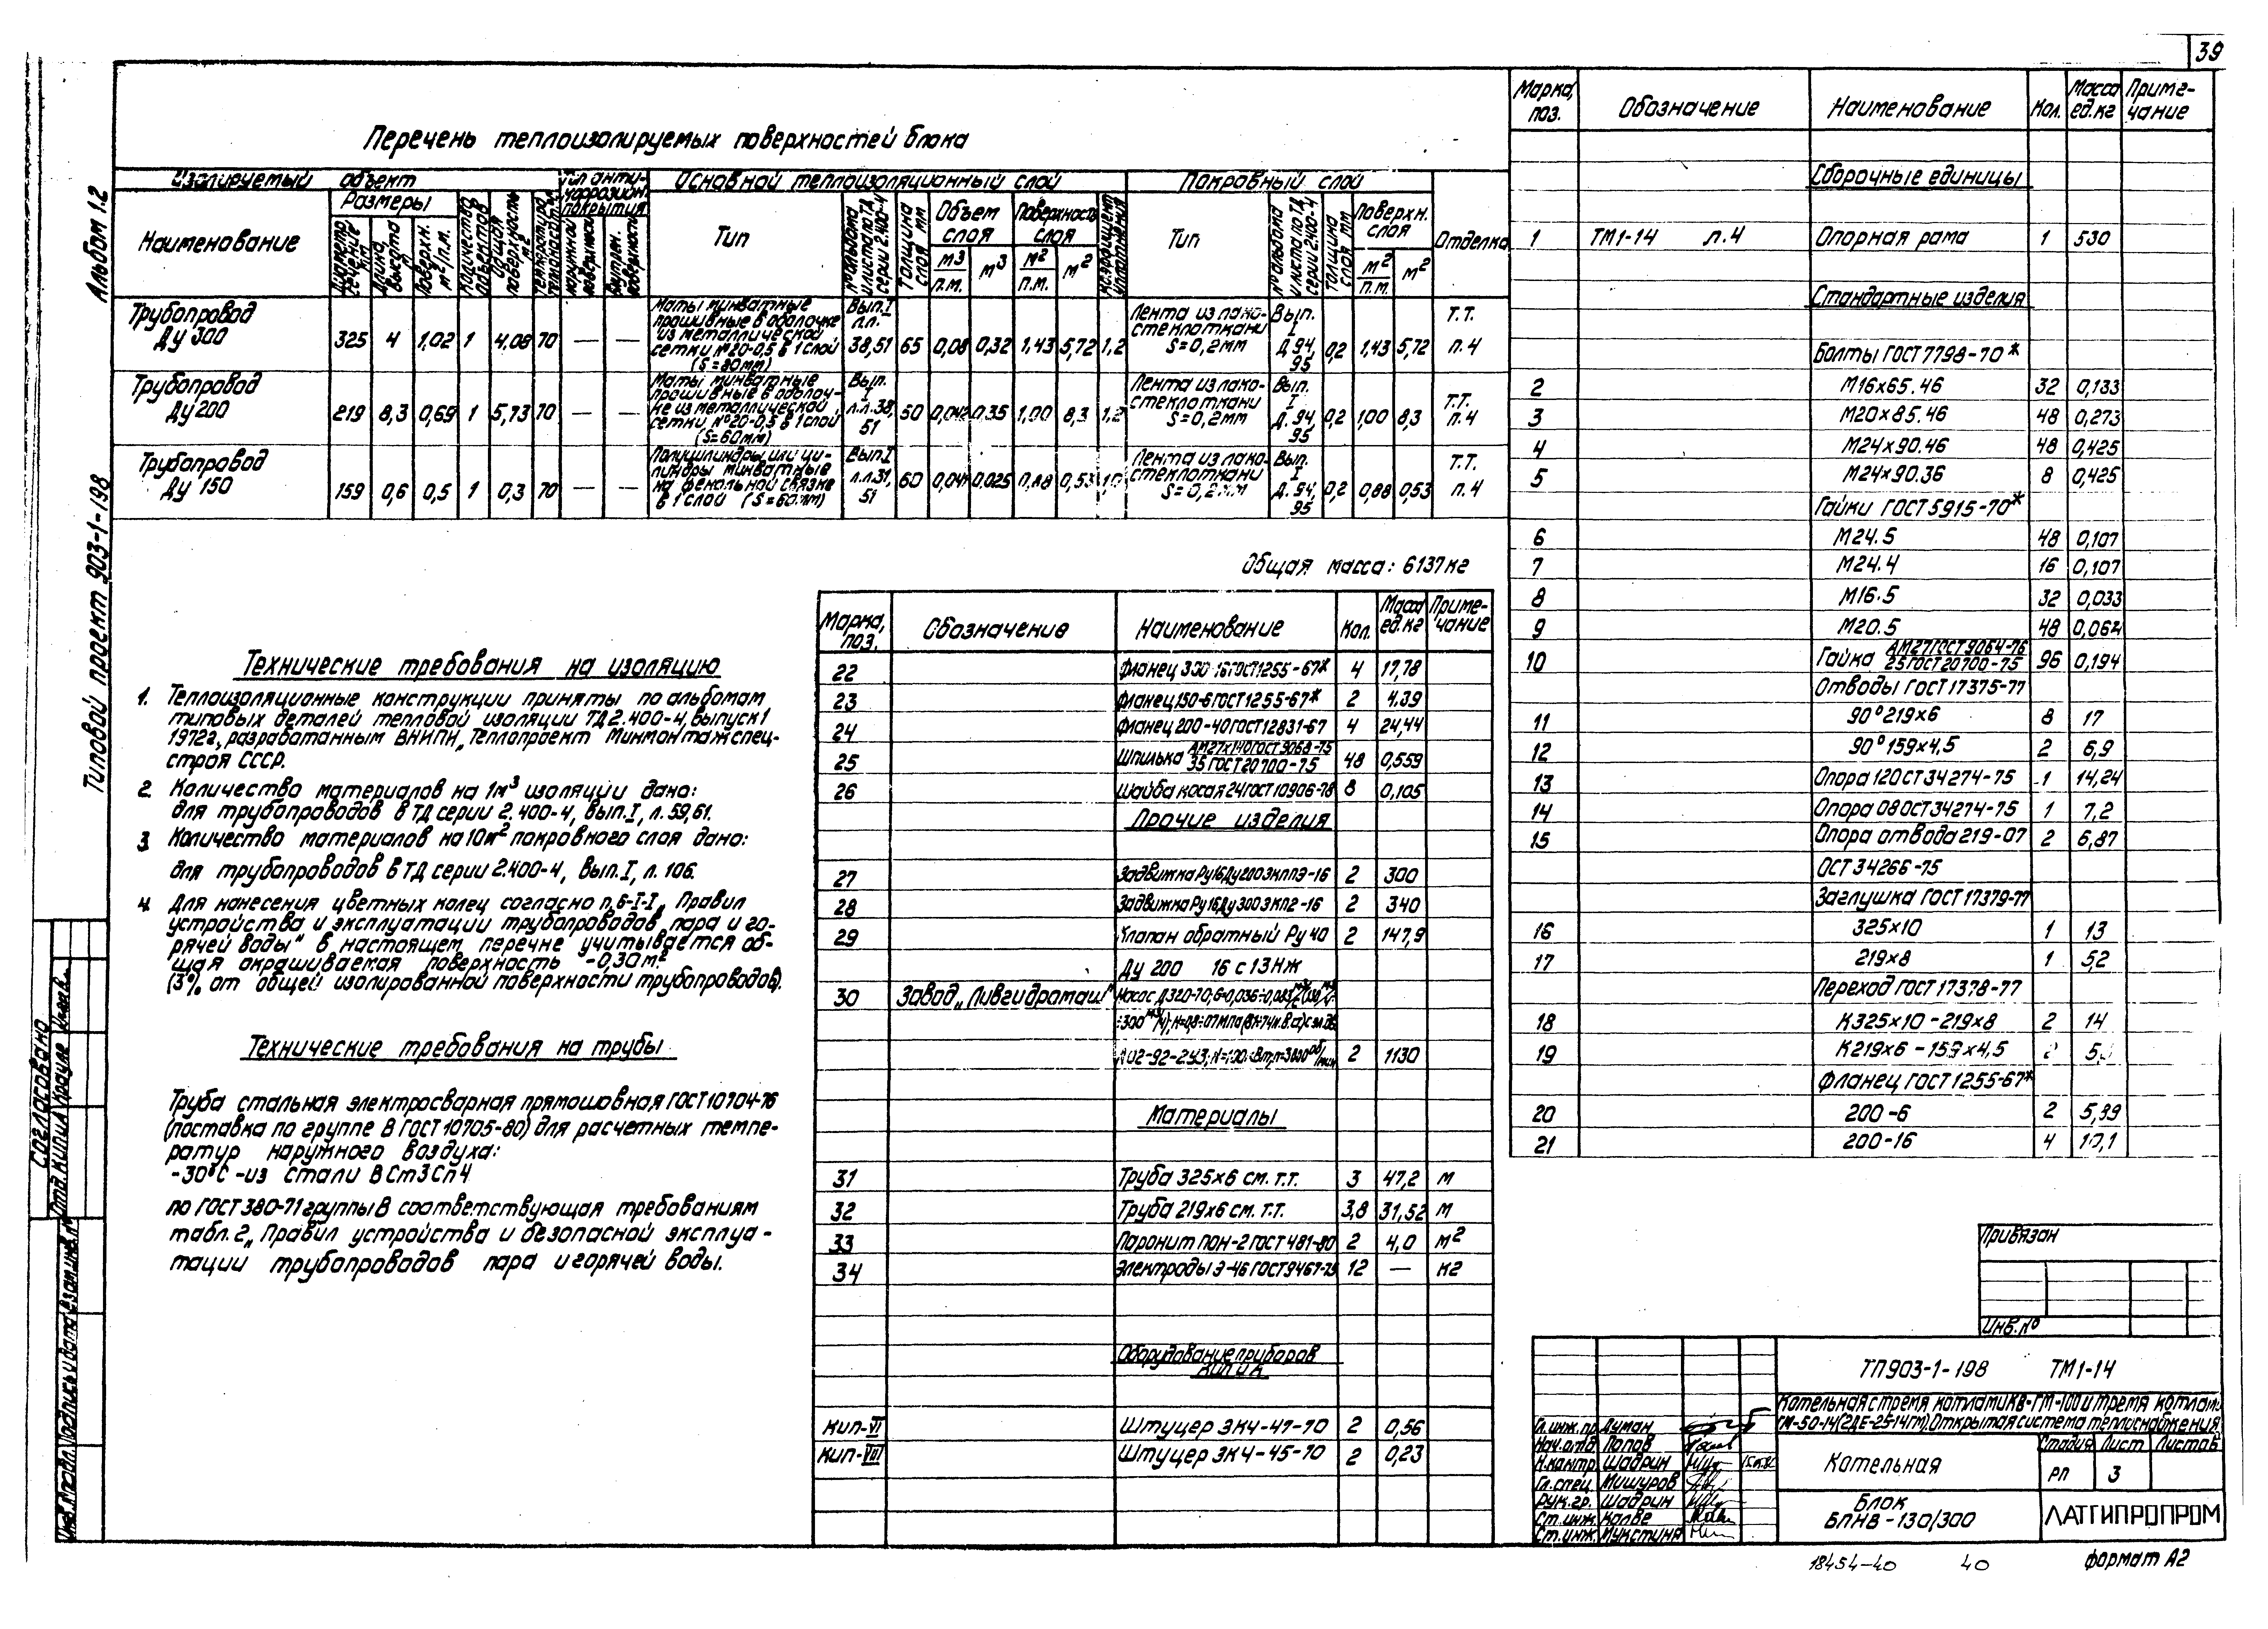 39
Альбом 1.2
Типовой проект 903-1-198
Перечень теплоизолируемых поверхностей блока
Изолируемый объект
Размеры
Наименование
Основной теплоизоляционный слой
Тип
Толщина слоя мм
Объем слоя
Поверхность слоя
м3/п.м. м3 м2/п.м. м2
Покровный слой
Тип
Толщина слоя мм
Поверхн. слоя
м2/п.м. м2
Отделка
Трубопровод Ду 300
325 4 1,02 1 4,08 70 — —
Маты минватные
прошивные в оболочке
из металлической
сетки №20-0,5 в 1 слой
(S=80мм)
Вып.I л.л. 38,51
65 0,08 0,32 1,43 5,72 1,2
Лента из лако-
стеклоткани
S=0,2мм
Вып. I Д 94, 95
0,2 1,43 5,72 Т.Т. п.4
Трубопровод Ду 200
219 8,3 0,69 1 5,73 70 — —
Маты минватные
прошивные в оболоч-
ке из металлической
сетки №20-0,5 в 1 слой
(S=60мм)
Вып. I л.л.38, 51
50 0,042 0,35 1,00 8,3 1,2
Лента из лако-
стеклоткани
S=0,2мм
Вып. I Д. 94, 95
0,2 1,00 8,3 Т.Т. п.4
Трубопровод Ду 150
159 0,6 0,5 1 0,3 70 — —
Полуцилиндры или ци-
линдры минватные
на фенольной связке
в 1 слой (S=60мм)
Вып.I л.л.31, 51
60 0,041 0,025 0,53
Лента из лако-
стеклоткани
S=0,2мм
Вып. I Д. 94, 95
0,2 0,88 0,53 Т.Т. п.4
Общая масса: 6137кг
Технические требования на изоляцию
1. Теплоизоляционные конструкции приняты по альбомам
типовых деталей тепловой изоляции ТД 2.400-4, выпуск 1
1972г, разработанным ВНИПИ „Теплопроект Минмонтажспец-
строя СССР.
2. Количество материалов на 1м3 изоляции дано:
для трубопроводов в ТД серии 2.400-4, вып.I, л. 59,61.
3. Количество материалов на 10м2 покровного слоя дано:
для трубопроводов в ТД серии 2.400-4, Вып.I, л. 106.
4. Для нанесения цветных колец согласно п.6-I-I „Правил
устройства и эксплуатации трубопроводов пара и го-
рячей воды" в настоящем перечне учитывается об-
щая окрашиваемая поверхность -0,30м2
(3% от общей изолированной поверхности трубопроводов).
Технические требования на трубы
Труба стальная электросварная прямошовная ГОСТ10704-76
(поставка по группе В ГОСТ 10705-80) для расчетных темпе-
ратур наружного воздуха:
-30°С -из стали ВСт3сп4
по ГОСТ 380-71 группы В соответствующая требованиям
табл. 2 „Правил устройства и безопасной эксплуа-
тации трубопроводов пара и горячей воды.
Марка, поз. Обозначение Наименование Кол. Масса ед.кг Приме-чание
22 Фланец 300-16 ГОСТ1255-67* 4 17,78
23 Фланец 150-6 ГОСТ1255-67* 2 4,39
24 Фланец 200-40 ГОСТ12831-67 4 24,44
25 Шпилька АМ27х140ГОСТ9068-75/35 ГОСТ 20700-75 48 0,559
26 Шайба косая 24 ГОСТ10906-78 8 0,105
Прочие изделия
27 Задвижка Ру16Ду200 ЗКЛПЭ-16 2 300
28 Задвижка Ру16Ду300 ЗКЛ2-16 2 340
29 Клапан обратный Ру 40 2 147,9
Ду 200 16 с 13 нж
30 Завод „Ливгидромаш" Насос Д320-70;
2 1130
Материалы
31 Труба 325х6 см. т.т. 3 47,2 м
32 Труба 219х6 см. т.т. 3,8 31,52 м
33 Паронит ПОН-2 ГОСТ 481-80 2 4,0 м2
34 Электроды Э-46 ГОСТ9467-75 12 — кг
Оборудование приборов
КИП и А
Кип-VI Штуцер ЗК4-47-70 2 0,56
Кип-VIII Штуцер ЗК4-45-70 2 0,23
Марка, поз. Обозначение Наименование Кол. Масса ед.кг Приме-чание
Сборочные единицы
1 ТМ1-14 л.4 Опорная рама 1 530
Стандартные изделия
Болты ГОСТ 7798-70*
2 М16х65.46 32 0,133
3 М20х85.46 48 0,273
4 М24х90.46 48 0,425
5 М24х90.36 8 0,425
Гайки ГОСТ 5915-70*
6 М24.5 48 0,107
7 М24.4 16 0,107
8 М16.5 32 0,033
9 М20.5 48 0,064
10 Гайка АМ27ГОСТ9064-76/25ГОСТ20700-75 96 0,194
Отводы ГОСТ 17375-77
11 90°219х6 8 17
12 90°159х4,5 2 6,9
13 Опора 12 ОСТ 34 274-75 1 14,24
14 Опора 08 ОСТ34274-75 1 7,2
15 Опора отвода 219-07 2 6,87
ОСТ 34266-75
Заглушка ГОСТ 17379-77
16 325х10 1 13
17 219х8 1 5,2
Переход ГОСТ 17378-77
18 К325х10-219х8 2 14
19 К219х6-159х4,5 2
Фланец ГОСТ 1255-67*
20 200-6 2 5,39
21 200-16 4 10,1
Привязан
Инв.№
ТП903-1-198 ТМ1-14
Котельная с тремя котлами КВ-ГМ-100 и тремя котлами
ГМ-50-14 (2ДЕ-25-14ГМ). Открытая система теплоснабжения
Котельная
Стадия Лист Листов
РП 3
Блок
БПНВ-130/300
ЛАТГИПРОПРОМ
Гл. инж. пр. Думан
Нач.отд. Попов
Н.контр. Шадрин
Гл.спец. Мишуров
Рук.гр. Шадрин
Ст.инж. Калве
Ст.инж. Мукстиня
Согласовано
Отд. КИПиА Крауле
Инв.№подл. Подпись и дата Взам.инв.№
18454-40 40 формат А2